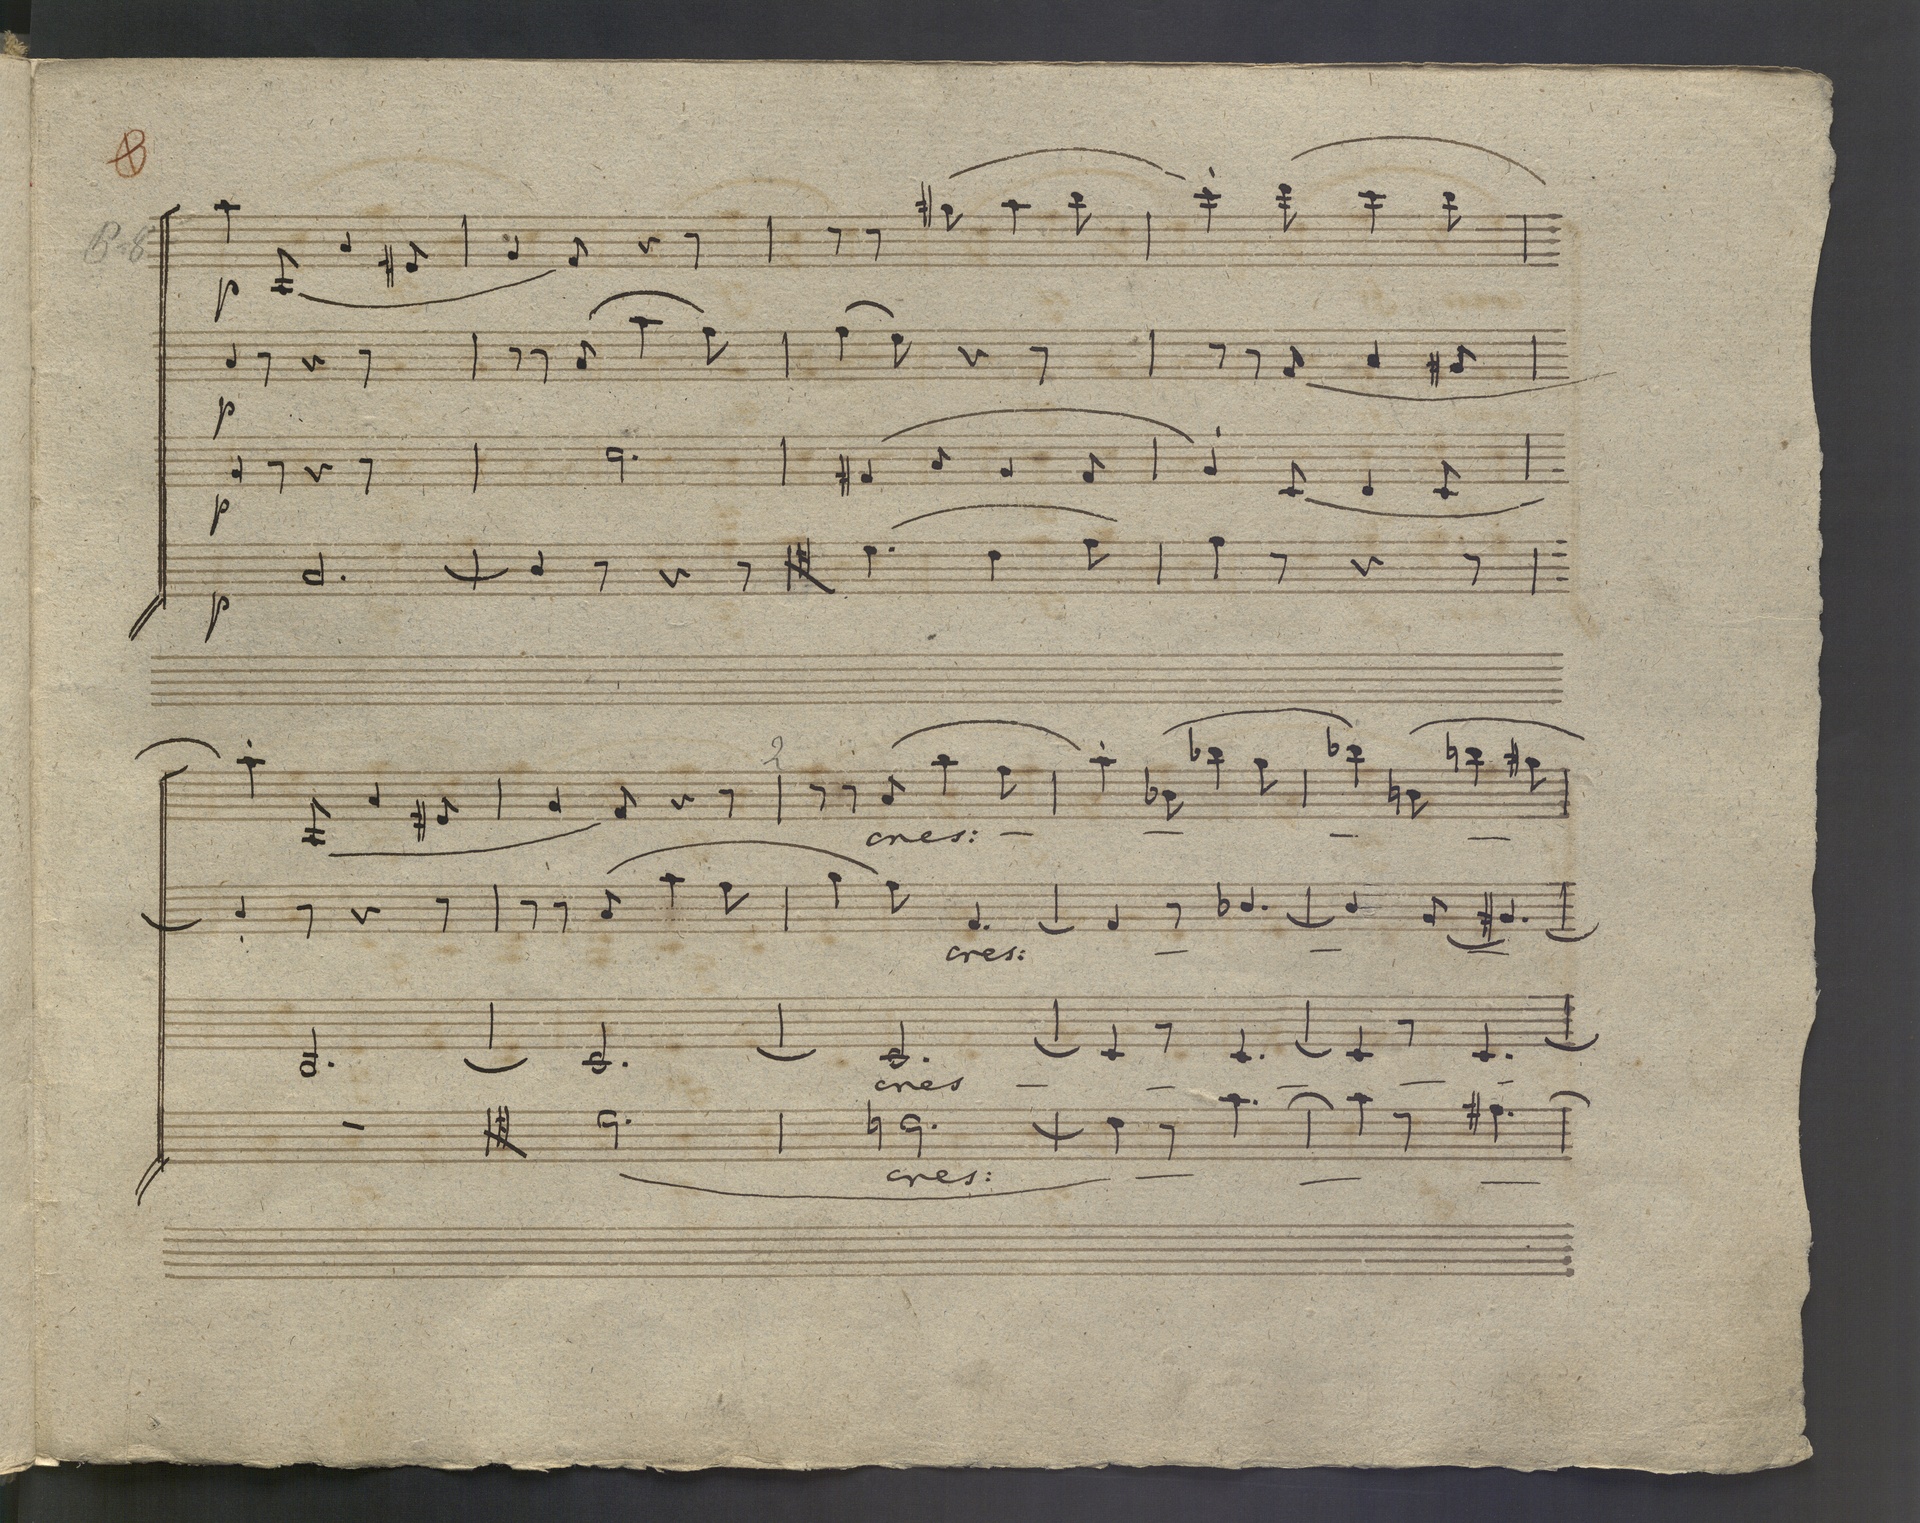 8
p
p
p
p
2
cres:
cres:
cres
cres: